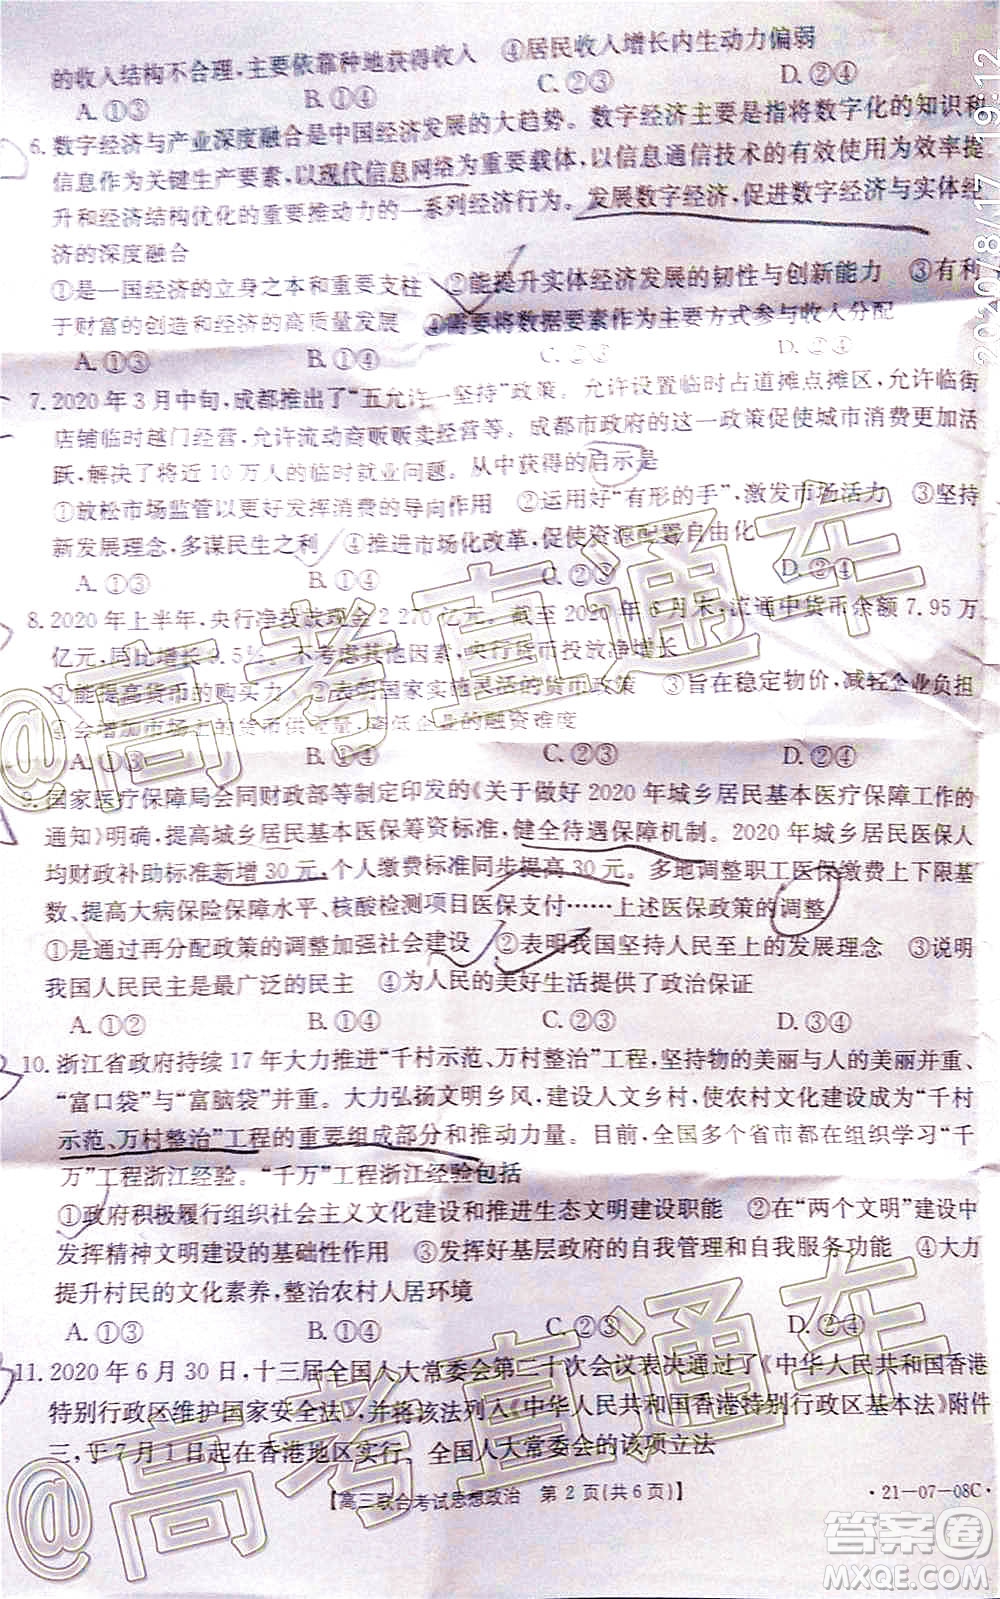 的收入结构不合理,主要依靠种地获得收入 ④居民收入增长内生动力偏弱
A. ①③ B. ①④ C. ②③ D. ②④
6. 数字经济与产业深度融合是中国经济发展的大趋势。数字经济主要是指将数字化的知识和
信息作为关键生产要素,以现代信息网络为重要载体,以信息通信技术的有效使用为效率提
升和经济结构优化的重要推动力的一系列经济行为。发展数字经济,促进数字经济与实体经
济的深度融合
①是一国经济的立身之本和重要支柱 ②能提升实体经济发展的韧性与创新能力 ③有利
于财富的创造和经济的高质量发展 ④需要将数据要素作为主要方式参与收入分配
A. ①③ B. ①④ C. ②③ D. ②④
7. 2020 年 3 月中旬,成都推出了“五允许一坚持”政策。允许设置临时占道摊点摊区,允许临街
店铺临时越门经营,允许流动商贩贩卖经营等。成都市政府的这一政策促使城市消费更加活
跃,解决了将近 10 万人的临时就业问题。从中获得的启示是
①放松市场监管以更好发挥消费的导向作用 ②运用好“有形的手”,激发市场活力 ③坚持
新发展理念,多谋民生之利 ④推进市场化改革,促使资源配置自由化
A. ①③ B. ①④ C. ②③ D. ②④
8. 2020 年上半年,央行净投放现金 2 270 亿元。截至 2020 年 6 月末,流通中货币余额 7.95 万
亿元,同比增长 9.5%。不考虑其他,央行货币投放净增长
①能提高货币的购买力 ②表明国家实施灵活的货币政策 ③旨在稳定物价,减轻企业负担
④会增加市场上的货币供应量,降低企业的融资难度
A. ①③ B. ①④ C. ②③ D. ②④
9. 国家医疗保障局会同财政部等制定印发的《关于做好 2020 年城乡居民基本医疗保障工作的
通知》明确,提高城乡居民基本医保筹资标准,健全待遇保障机制。2020 年城乡居民医保人
均财政补助标准新增 30 元,个人缴费标准同步提高 30 元。多地调整职工医保缴费上下限基
数、提高大病保险保障水平、核酸检测项目医保支付……上述医保政策的调整
①是通过再分配政策的调整加强社会建设 ②表明我国坚持人民至上的发展理念 ③说明
我国人民民主是最广泛的民主 ④为人民的美好生活提供了政治保证
A. ①② B. ①④ C. ②③ D. ③④
10. 浙江省政府持续 17 年大力推进“千村示范、万村整治”工程,坚持物的美丽与人的美丽并重、
“富口袋”与“富脑袋”并重。大力弘扬文明乡风,建设人文乡村,使农村文化建设成为“千村
示范、万村整治”工程的重要组成部分和推动力量。目前,全国多个省市都在组织学习“千
万”工程浙江经验。“千万”工程浙江经验包括
①政府积极履行组织社会主义文化建设和推进生态文明建设职能 ②在“两个文明”建设中
发挥精神文明建设的基础性作用 ③发挥好基层政府的自我管理和自我服务功能 ④大力
提升村民的文化素养,整治农村人居环境
A. ①③ B. ①④ C. ②③ D. ②④
11. 2020 年 6 月 30 日,十三届全国人大常委会第二十次会议表决通过了《中华人民共和国香港
特别行政区维护国家安全法》,并将该法列入《中华人民共和国香港特别行政区基本法》附件
三,于 7 月 1 日起在香港地区实行。全国人大常委会的该项立法
【高三联合考试思想政治 第 2 页(共 6 页)】 ·21-07-08C·
2020/8/17 19:12
@高考直通车
@高考直通车
答案圈
MXQE.COM